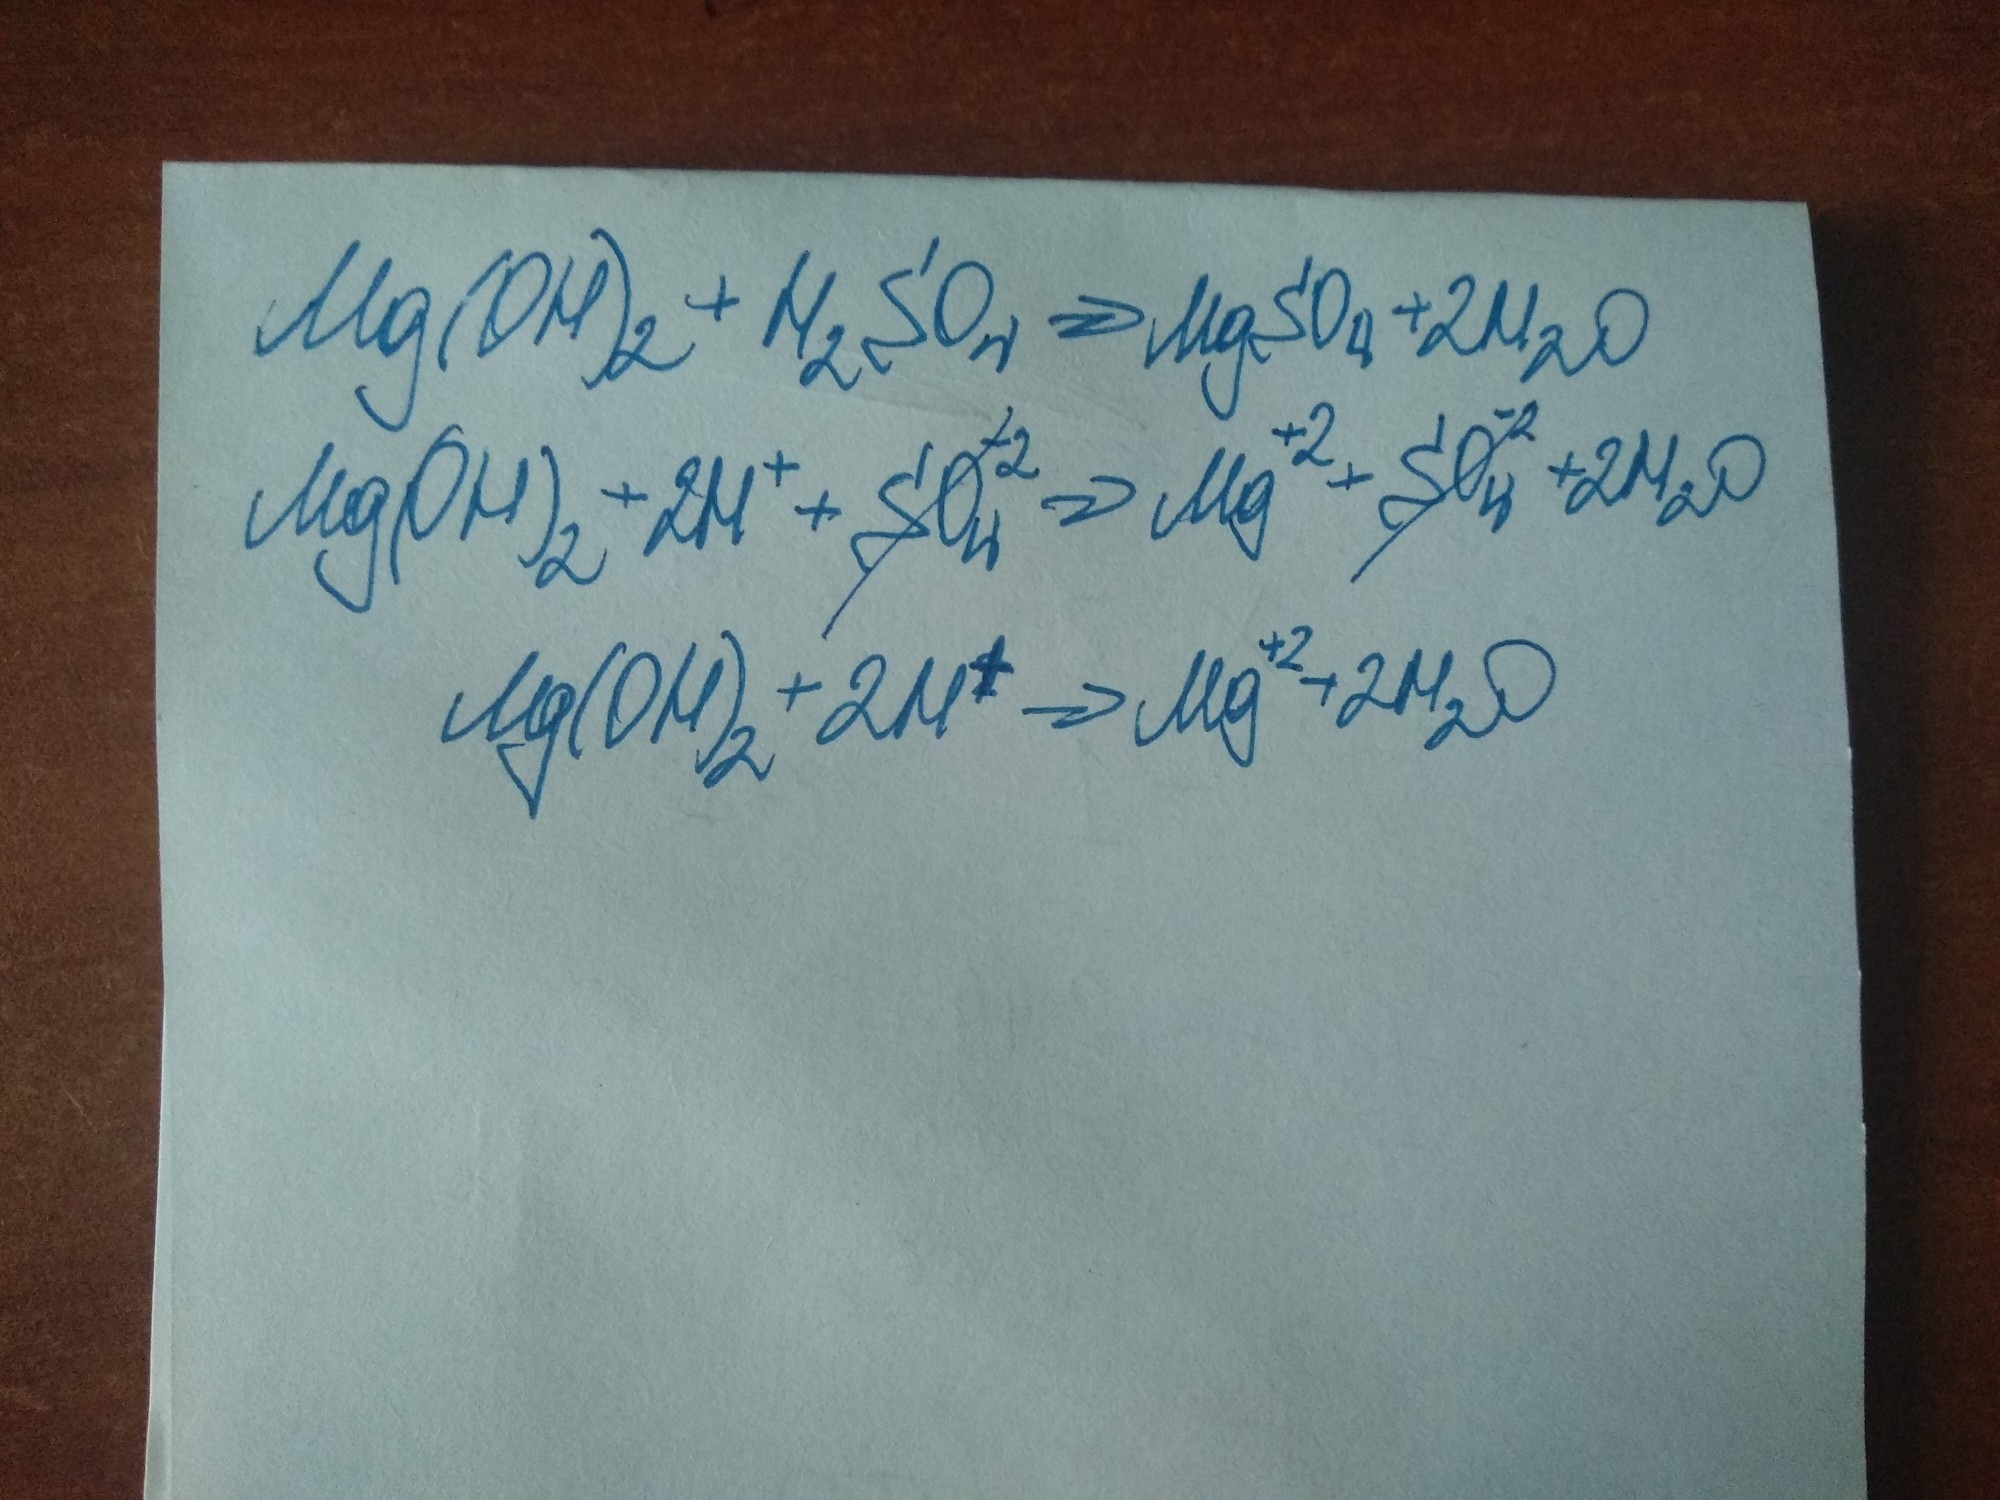 Mg(OH)₂ + H₂SO₄ ⇒ MgSO₄ + 2H₂O
Mg(OH)₂ + 2H⁺ + SO₄⁻² ⇒ Mg⁺² + SO₄⁻² + 2H₂O
Mg(OH)₂ + 2H⁺ → Mg⁺² + 2H₂O